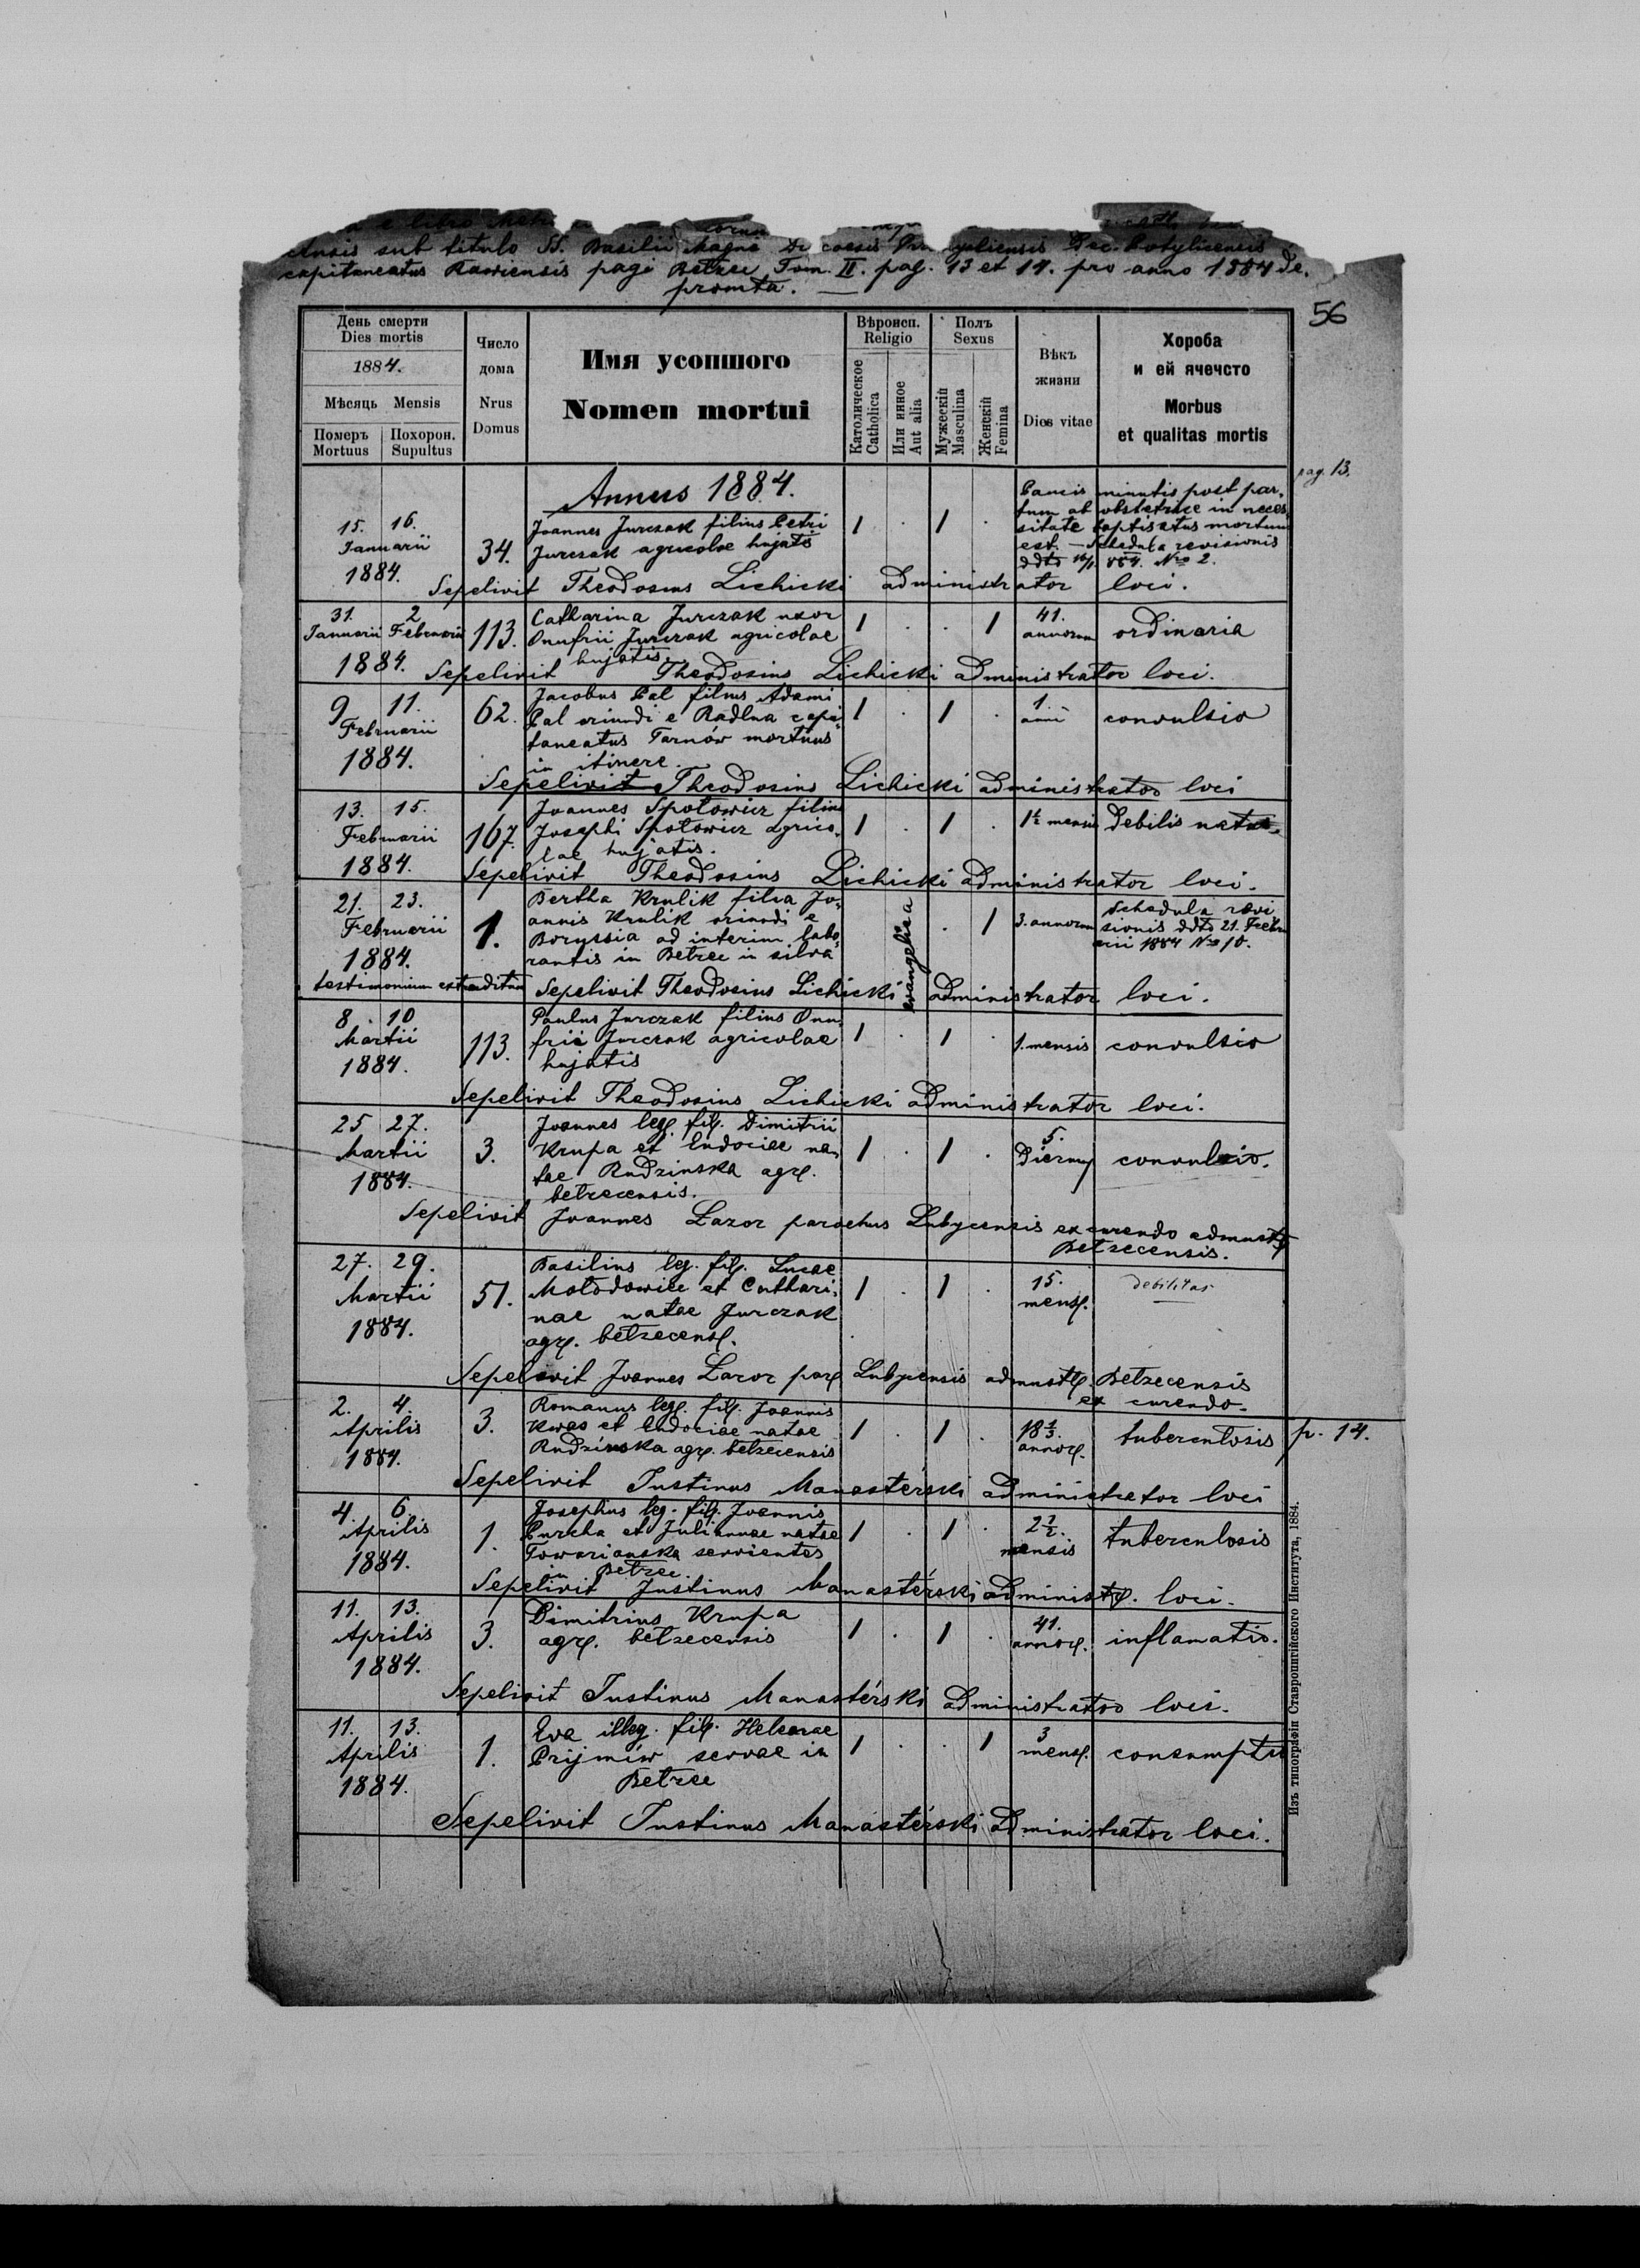 e libro Metr
sub titulo St. Basilii Magni Di
capitaneatus Rawiensis pagi Bełzec Tom. II. pag. 13 et 14. pro anno 1884 de,
promta. —
56
День смерти
Dies mortis
1884.
Мѣсяць Mensis
Померъ Mortuus
Похорон. Supultus
Число дома
Nrus Domus
Имя усопшого
Nomen mortui
Вѣроисп.
Religio
Католическое Catholica
Или инное Aut alia
Полъ
Sexus
Мужескій Masculina
Женскій Femina
Вѣкъ жизни
Dies vitae
Хороба
и ей ячечсто
Morbus
et qualitas mortis
pag. 13.
Annus 1884.
15. 16.
Januarii
1884.
34.
Joannes Jurczak filius Petri
Jurczak agricolae hujatis
1 . 1 .
Paucis minutis post par,
tum ab obstetrice in neces
sitate baptisatus mortuus
est. — Schedula revisionis
ddto 16/1 884. Nro 2.
Sepelivit Theodosius Lichicki administrator loci.
31. 2
Januarii Februarii
1884.
113.
Catharina Jurczak uxor
Onufrii Jurczak agricolae
hujatis.
1 . . 1
41.
annorum
ordinaria
Sepelivit Theodosius Lichicki administrator loci.
9 11.
Februarii
1884.
62.
Jacobus Pal filius Adami
Pal oriundi e Radlna capi
taneatus Tarnów mortuus
in itinere.
1 . 1 .
1.
anni
convulsio
Sepelivit Theodosius Lichicki administrator loci
13. 15.
Februarii
1884.
167.
Joannes Spotowicz filius
Josephi Spotowicz agrico,
lae hujatis.
1 . 1 .
1½ mensis
debilis natus.
Sepelivit Theodosius Lichicki administrator loci.
21. 23.
Februarii
1884.
1.
Bertha Krulik filia Jo,
annis Krulik oriundi e
Boryssia ad interim labo,
rantis in Bełzec in silva
evangelica
. 1
3. annorum
Schedula revi
sionis ddto 21. Febru
arii 1884 Nro 10.
testimonium extraditum
Sepelivit Theodosius Lichicki administrator loci.
8. 10
Martii
1884.
113.
Paulus Jurczak filius Onu,
frii Jurczak agricolae
hujatis
1 . 1 .
1. mensis
convulsio
Sepelivit Theodosius Lichicki administrator loci.
25 27.
Martii
1884.
3.
Joannes leg. fil. Dimitrii
Krupa et Eudociae na,
tae Rudzinska agr.
bełzecensis.
1 . 1 .
5.
dierum
convulsio.
Sepelivit Joannes Lazor parochus Lubycensis excurendo admstr
Bełzecensis.
27. 29.
Martii
1884.
51.
Basilius leg. fil. Lucae
Mołodowiec et Cathari,
nae natae Jurczak
agr. bełzecens.
1 . 1 .
15.
mens.
debilitas
Sepelivit Joannes Lazor par. Lubycensis admnstr. Bełzecensis
ex curendo.
2. 4.
Aprilis
1884.
3.
Romanus leg. fil. Joannis
Kwas et Eudociae natae
Rudzinska agr. bełzecensis
1 . 1 .
18⅓.
annor.
tuberculosis
p. 14.
Sepelivit Justinus Manastérski administrator loci
4. 6.
Aprilis
1884.
1.
Josephus leg. fil. Joannis
Purcha et Juliannae natae
Towarianska servientes
in Bełzec.
1 . 1 .
2½.
mensis
tuberculosis
Sepelivit Justinus Manastérski administr. loci.
11. 13.
Aprilis
1884.
3.
Dimitrius Krupa
agr. bełzecensis
1 . 1 .
41.
annor.
inflamatio.
Sepelivit Justinus Manastérski administrator loci.
11. 13.
Aprilis
1884.
1.
Eva illeg. fil. Helenae
Prijmów servae in
Bełzec
1 . . 1
3
mens.
consumptio
Sepelivit Justinus Manastérski administrator loci.
Изъ типографіи Ставропигійского Института, 1884.